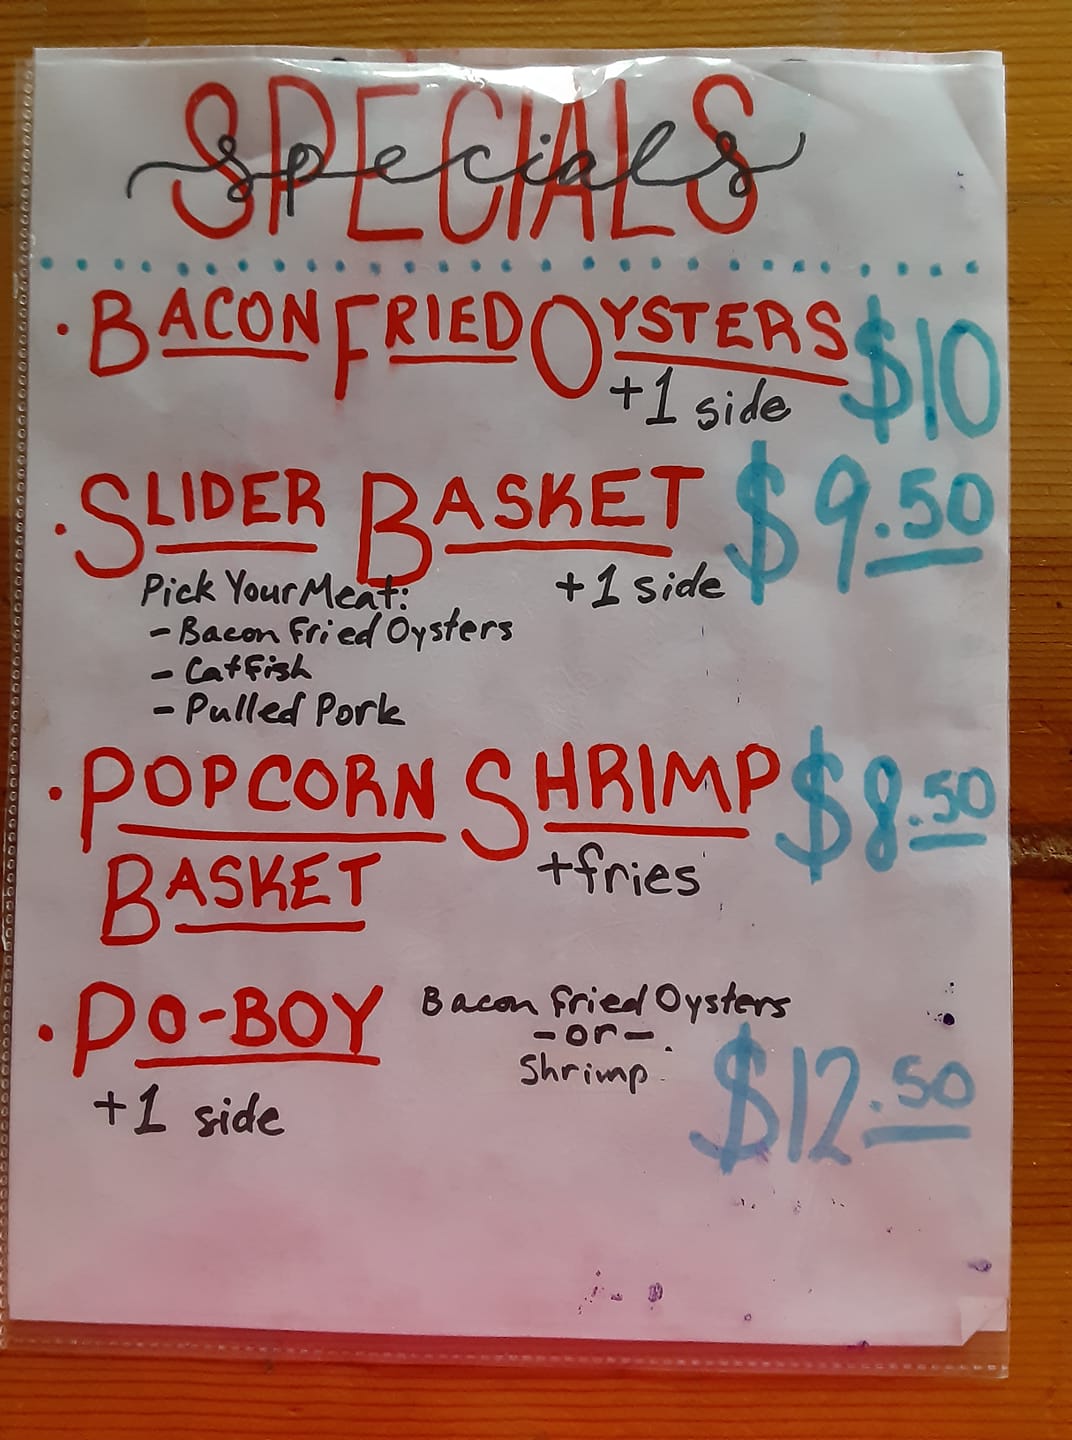 SPECIALS
specials
• BACON FRIED OYSTERS $10
+1 side
• SLIDER BASKET $9.50
Pick Your Meat: +1 side
- Bacon Fried Oysters
- Catfish
- Pulled Pork
• POPCORN SHRIMP $8.50
BASKET +fries
• PO-BOY Bacon Fried Oysters
-or-
Shrimp $12.50
+1 side